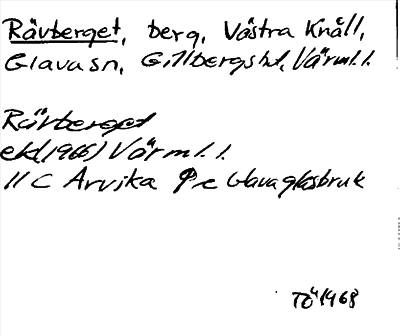 Rävberget, berg, Västra Knåll,
Glava sn, Gillbergs hd, Värml. l.
Rävberget
ek(1966) Värml. l.
11 C Arvika 9 c Glava glasbruk
TÖ 1968